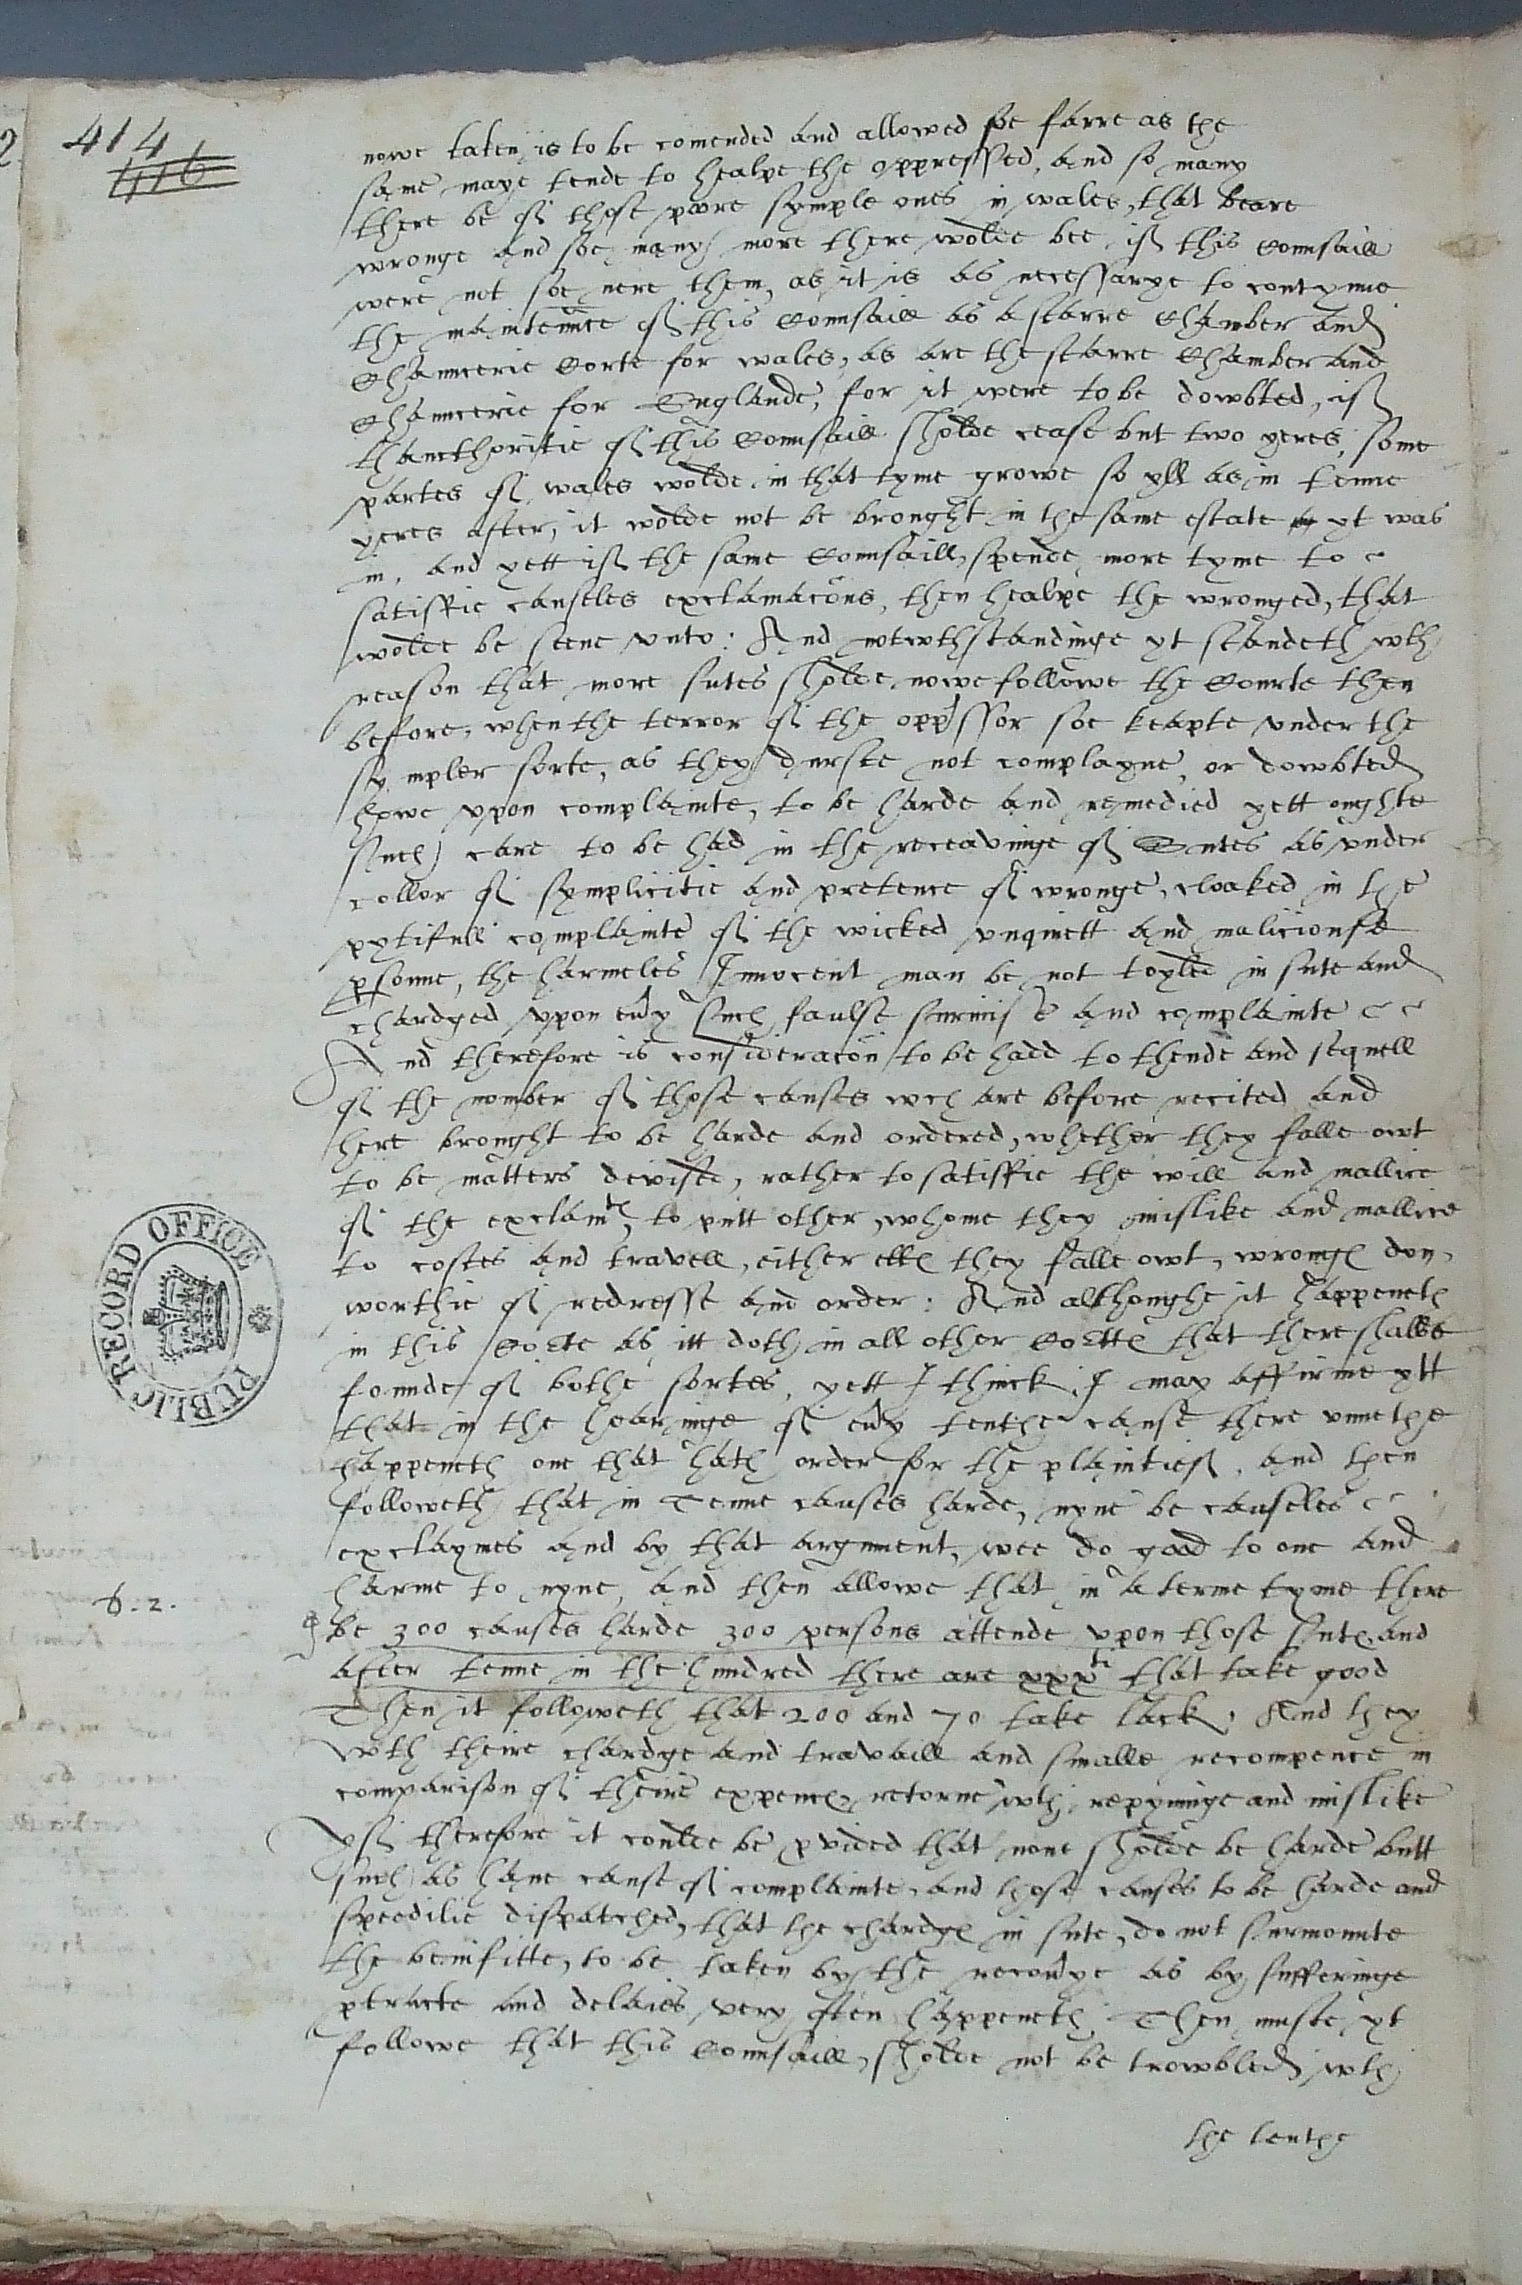 414
416
nowe taken is to be comended and allowed soe farre as the
same maye tende to healpe the oppressed, and so many
there be of those poore symple ones in wales, that beare
wronge and soe many more there wolde bee if this Counsaill
were not soe nere them, as it is as necessarye to contynue
the maintennce of this Counsaill as a starre Chamber and
Chauncerie Corte for wales, as are the starre Chamber and
Chauncerie for Englande, for it were to be dowbted, if
thaucthoritie of this Counsaill sholde cease but two yeres, some
partes of wales wolde in that tyme growe so yll as in tenne
yeres after, it wolde not be brought in the same estate yt was
in, and yett if the same Counsaill, spende more tyme to
satisfie causeles exclamacons, then healpe the wronged, that
wolde be seene vnto: And notwthstandinge yt standeth wth
reason that more sutes sholde nowe followe the Courte then
before, when the terror of the oppssor soe keapte vnder the
sympler sorte, as they durste not complayne, or dowbted
howe vpon complainte, to be harde and remedied yett oughte
such care to be had in the receavinge of Sutes as vnder
collor of symplicitie and pretence of wronge, cloaked in the
pytifull complainte of the wicked vnquiett and maliciouse
psonne, the harmeles Innocent man be not toyled in sute and
chardged vpon euy such faulse surmise and complainte
And therefore is consideracon to be hadd to thende and sequell
of the nomber of those causes wch are before recited and
here brought to be harde and ordered, whether they falle owt
to be matters devised, rather to satisfie the will and mallice
of the exclamr, to putt other, whome they mislike and mallice
to costes and travell, either elles they falle owt, wronges don,
worthie of redresse and order: And althoughe it happeneth
in this Corte as itt doth in all other Cortes that there shalbe
founde of bothe sortes, yett I thinck I may affirme ytt
that in the hearinge of euy tenthe cause there vnnethe
happeneth one that hath order for the plaintief, and then
followeth that in Tenne causes harde, nyne be causeles
exclaymes and by that argument, wee do good to one and
harme to nyne, and then allowe that in a terme tyme there
6.2.
be 300 causes harde 300 persons attende vpon those sutes, and
after tenne in the hundred there are xxxti that take good
Then it followeth that 200 and 70 take lack, And they
wth theire chardge and travaill and smalle recompence in
comparison of theire expences retorne wth repyninge and mislike
Yf therefore it coulde be pvided that none sholde be harde butt
such as haue cause of complainte, and those causes to be harde and
speedilie dispatched, that the chardges in sute, do not surmounte
the benifitte, to be taken by the recouye as by sufferinge
ptracte and delaies very often happeneth, Then muste yt
followe that this Counsaill, sholde not be trowbled wth
the tenthe
PUBLIC RECORD OFFICE